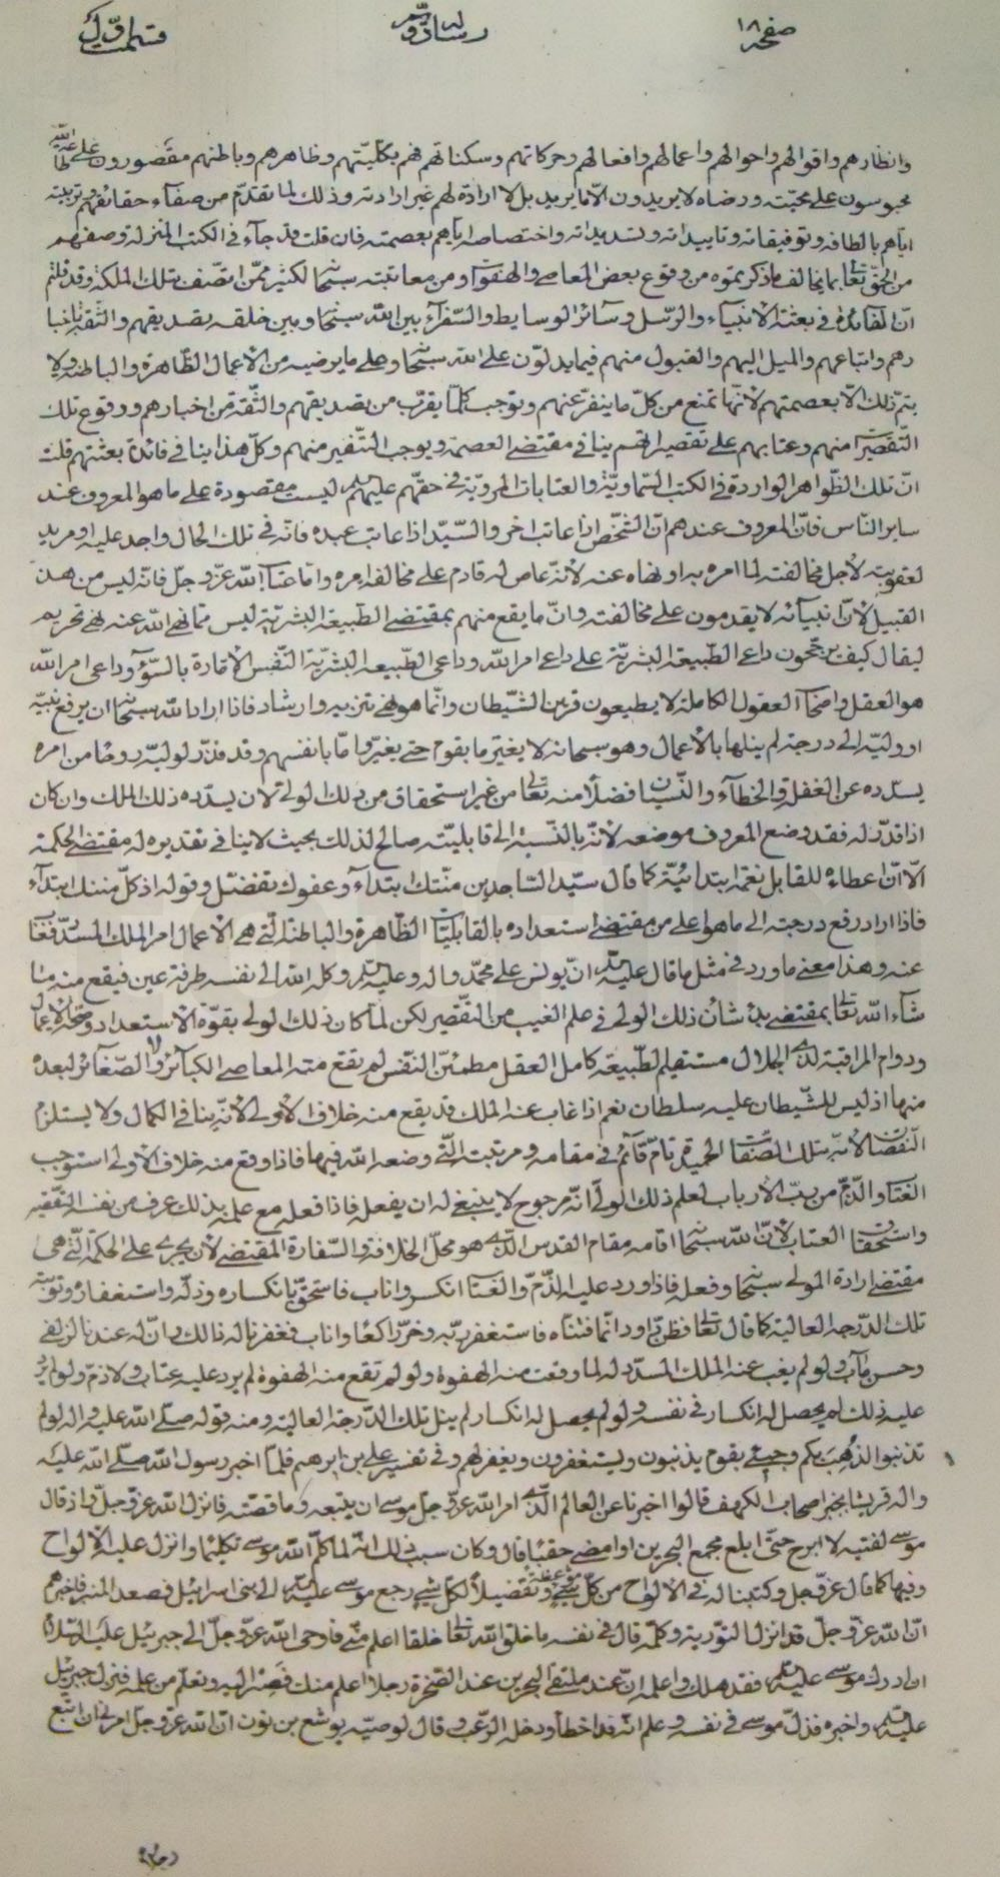 صفحه ١٨ رساله دويم قسمت اول
وانظارهم واقوالهم واحوالهم واعمالهم وافعالهم وحركاتهم وسكناتهم فهم بكليتهم وظاهرهم وباطنهم مقصورون على طاعة الله
محبوسون على محبته ورضاه لا يريدون الا ما يريد بل لا ارادة لهم غير ارادته وذلك لما تقدم من صفآء حقائقهم وتربيته
اياهم بالطافه وتوفيقاته وتاييداته وتسديداته واختصاصه اياهم بعصمته فان قلت قد جآء في الكتب المنزلة وصفهم
من الحق تعالى بما يخالف ما ذكرتموه من وقوع بعض المعاصي والهفوات ومن معاتبته سبحانه لكثير ممن اتصف بتلك الملكة وقد قلتم
ان الفائدة في بعثة الانبياء والرسل وسائر الوسايط والسفرآء بين الله سبحانه وبين خلقه تصديقهم والثقة باخبا
رهم واتباعهم والميل اليهم والقبول منهم فيما يدلون على الله سبحانه وعلى ما يرضيه من الاعمال الظاهرة والباطنة ولا
يتم ذلك الا بعصمتهم لانها تمنع من كل ما ينفر عنهم وتوجب كلما يقرب من تصديقهم والثقة من اخبارهم ووقوع تلك
التقصيرات منهم وعتابهم على تقصيراتهم ينافي مقتضى العصمة ويوجب التنفير منهم وكل هذا ينافي فائدة بعثتهم قلت
ان تلك الظواهر الواردة في الكتب السماوية والعتابات المروية في حقهم عليهم السلام ليست مقصودة على ما هو المعروف عند
ساير الناس فان المعروف عندهم ان الشخص اذا عاتب اخر والسيد اذا عاتب عبده فانه في تلك الحال واجد عليه او مريد
لعقوبته لاجل مخالفته لما امره به او نهاه عنه لانه عاص له قادم على مخالفة امره واما عتاب الله عز وجل فانه ليس من هذا
القبيل لان انبيآئه لا يقدمون على مخالفته وان ما يقع منهم بمقتضى الطبيعة البشرية ليس مما نهى الله عنه نهي تحريم
ليقال كيف يرجحون داعي الطبيعة البشرية على داعي امر الله وداعي الطبيعة البشرية النفس الامارة بالسوء وداعي امر الله
هو العقل واصحاب العقول الكاملة لا يطيعون قرين الشيطان وانما هو نهي تنزيه وارشاد فاذا اراد الله سبحانه ان يرفع نبيه
او وليه الى درجة لم ينلها بالاعمال وهو سبحانه لا يغير ما بقوم حتى يغيروا ما بانفسهم وقد قدر لوليه روحا من امره
يسدده عن الغفلة والخطآء والنسيان فضلا منه تعالى من غير استحقاق من ذلك الولي لان يسدده ذلك الملك وان كان
اذا قدر له فقد وضع المعروف موضعه لانه بالنسبة الى قابليته صالح لذلك بحيث لا ينافي تقديره له مقتضى الحكمة
الا ان اعطاءه للقابل نعمة ابتدائية كما قال سيد الساجدين منتك ابتدآء وعفوك تفضل وقوله اذ كل مننك ابتدآء
فاذا اراد رفع درجته الى ما هو اعلى من مقتضى استعداده بالقابليات الظاهرة والباطنة التي هي الاعمال امر الملك المسدد فغاب
عنه وهذا معنى ما ورد في مثل ما قال عليه السلام ان يونس على محمد واله وعليه السلام وكله الله الى نفسه طرفة عين فيقع منه ما
شآء الله تعالى بمقتضى شان ذلك الولي في علم الغيب من التقصير لكن لما كان ذلك الولي بقوة الاستعداد وصحة الاعمال
ودوام المراقبة لذي الجلال مستقيم الطبيعة كامل العقل مطمئن النفس لم يقع منه المعاصي الكبآئر ولا الصغآئر لبعده
منها اذ ليس للشيطان عليه سلطان نعم اذا غاب عنه الملك قد يقع منه خلاف الاولى لانه ينافي الكمال ولا يستلزم
النقصان لانه بتلك الصفات الحميدة تام قآئم في مقامه ومرتبته التي وضعه الله فيها فاذا وقع منه خلاف الاولى استوجب
العتاب والذم من رب الارباب لعلم ذلك الولي انه مرجوح لا ينبغي له ان يفعله فاذا فعله مع علمه بذلك عرف من نفسه التقصير
واستحقاق العتاب لان الله سبحانه اقامه مقام القدس الذي هو محل الخلافة والسفارة المقتضي لان يجري على الحكمة التي هي
مقتضى ارادة المولى سبحانه وفعله فاذا ورد عليه الذم والعتاب انكسر واناب فاستحق بانكساره وذله واستغفاره وتوبته
تلك الدرجة العالية كما قال تعالى وظن داود انما فتناه فاستغفر ربه وخر راكعا واناب فغفرنا له ذلك وان له عندنا لزلفى
وحسن مآب ولو لم يغب عنه الملك المسدد له لما وقعت منه الهفوة ولو لم تقع منه الهفوة لم يرد عليه عتاب ولا ذم ولو لم يرد
عليه ذلك لم يحصل له انكسار في نفسه ولو لم يحصل له انكسار لم ينل تلك الدرجة العالية ومنه قوله صلى الله عليه واله لو لم
تذنبوا لذهب بكم وجيئ بقوم يذنبون ويستغفرون ويغفر لهم وفي تفسير علي بن ابرهيم فلما اخبر رسول الله صلى الله عليه
واله قريشا بخبر اصحاب الكهف قالوا اخبرنا عن العالم الذي امر الله عز وجل موسى ان يتبعه وما قصته فانزل الله عز وجل واذ قال
موسى لفتيه لا ابرح حتى ابلغ مجمع البحرين او امضي حقبا قال وكان سبب ذلك انه لما كلم الله موسى تكليما وانزل عليه الالواح
وفيها كما قال عز وجل وكتبنا له في الالواح من كل شيئ موعظة وتفصيلا لكل شيئ رجع موسى عليه السلام الى بني اسرائيل فصعد المنبر فاخبرهم
ان الله عز وجل قد انزل التورية وكلمه قال في نفسه ما خلق الله تعالى خلقا اعلم مني فاوحى الله عز وجل الى جبرئيل عليه السلام
ان ادرك موسى عليه السلام فقد هلك واعلمه ان عند ملتقى البحرين عند الصخرة رجلا اعلم منك فصر اليه وتعلم من علمه فنزل جبرئيل
عليه السلام واخبره فذل موسى في نفسه وعلم انه قد اخطأ ودخله الرعب وقال لوصيه يوشع بن نون ان الله عز وجل امرني ان اتبع
رجلا